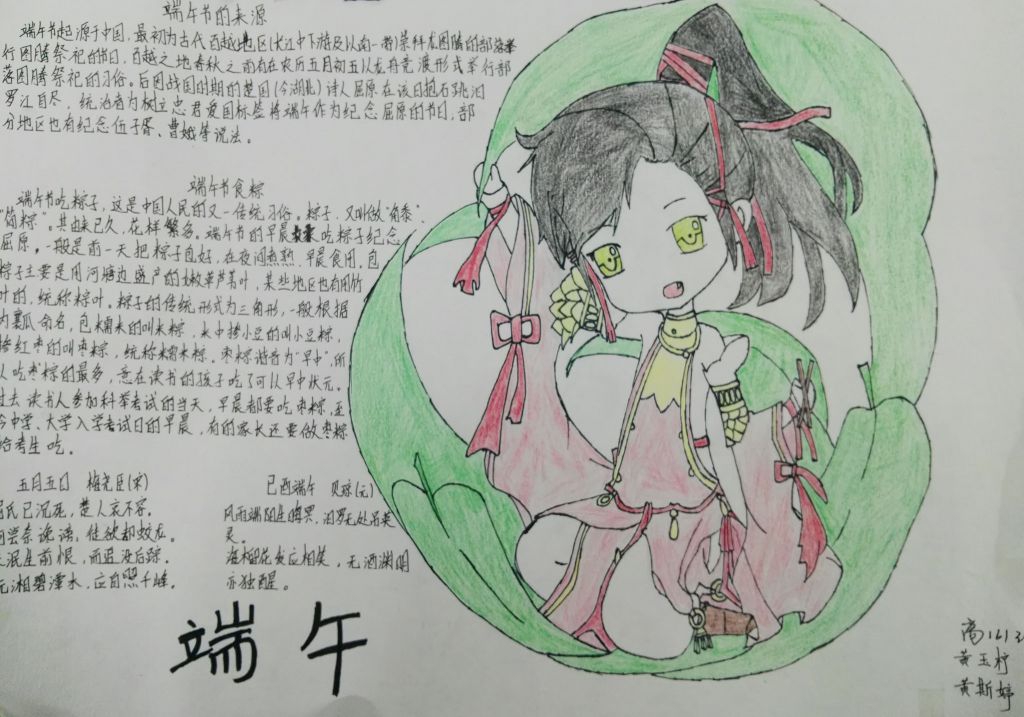 端午节的来源
端午节起源于中国,最初为古代百越地区(长江中下游及以南一带)崇拜龙图腾的部族举
行图腾祭祀的节日,百越之地春秋之前有在农历五月初五以龙舟竞渡形式举行部
落图腾祭祀的习俗。后因战国时期的楚国(今湖北)诗人屈原在该日抱石跳汨
罗江自尽,统治者为树立忠君爱国标签将端午作为纪念屈原的节日,部
分地区也有纪念伍子胥、曹娥等说法。
端午节食粽
端午节吃粽子,这是中国人民的又一传统习俗。粽子,又叫做“角黍”、
“筒粽”。其由来已久,花样繁多。端午节的早晨吃粽子纪念
屈原。一般是前一天把粽子包好,在夜间煮熟,早晨食用,包
粽子主要是用河塘边盛产的嫩芦苇叶,某些地区也有用竹
叶的,统称粽叶。粽子的传统形式为三角形,一般根据
内瓤命名,包糯米的叫米粽,米中掺小豆的叫小豆粽,
掺红枣的叫枣粽,统称糯米粽。枣粽谐音为“早中”,所
以吃枣粽的最多,意在读书的孩子吃了可以早中状元。
过去读书人参加科举考试的当天,早晨都要吃枣粽,至
今中学、大学入学考试日的早晨,有的家长还要做枣粽
给考生吃。
五月五日 梅尧臣(宋)
屈氏已沉死,楚人哀不容。
何尝奈谗谤,徒欲却蛟龙。
未泯生前恨,而追没后踪。
沅湘碧潭水,应自照千峰。
已酉端午 贝琼(元)
风雨端阳生晦冥,汨罗无处吊英
灵。
海榴花发应相笑,无酒渊明
亦独醒。
端午
高1613
黄玉柠
黄斯婷